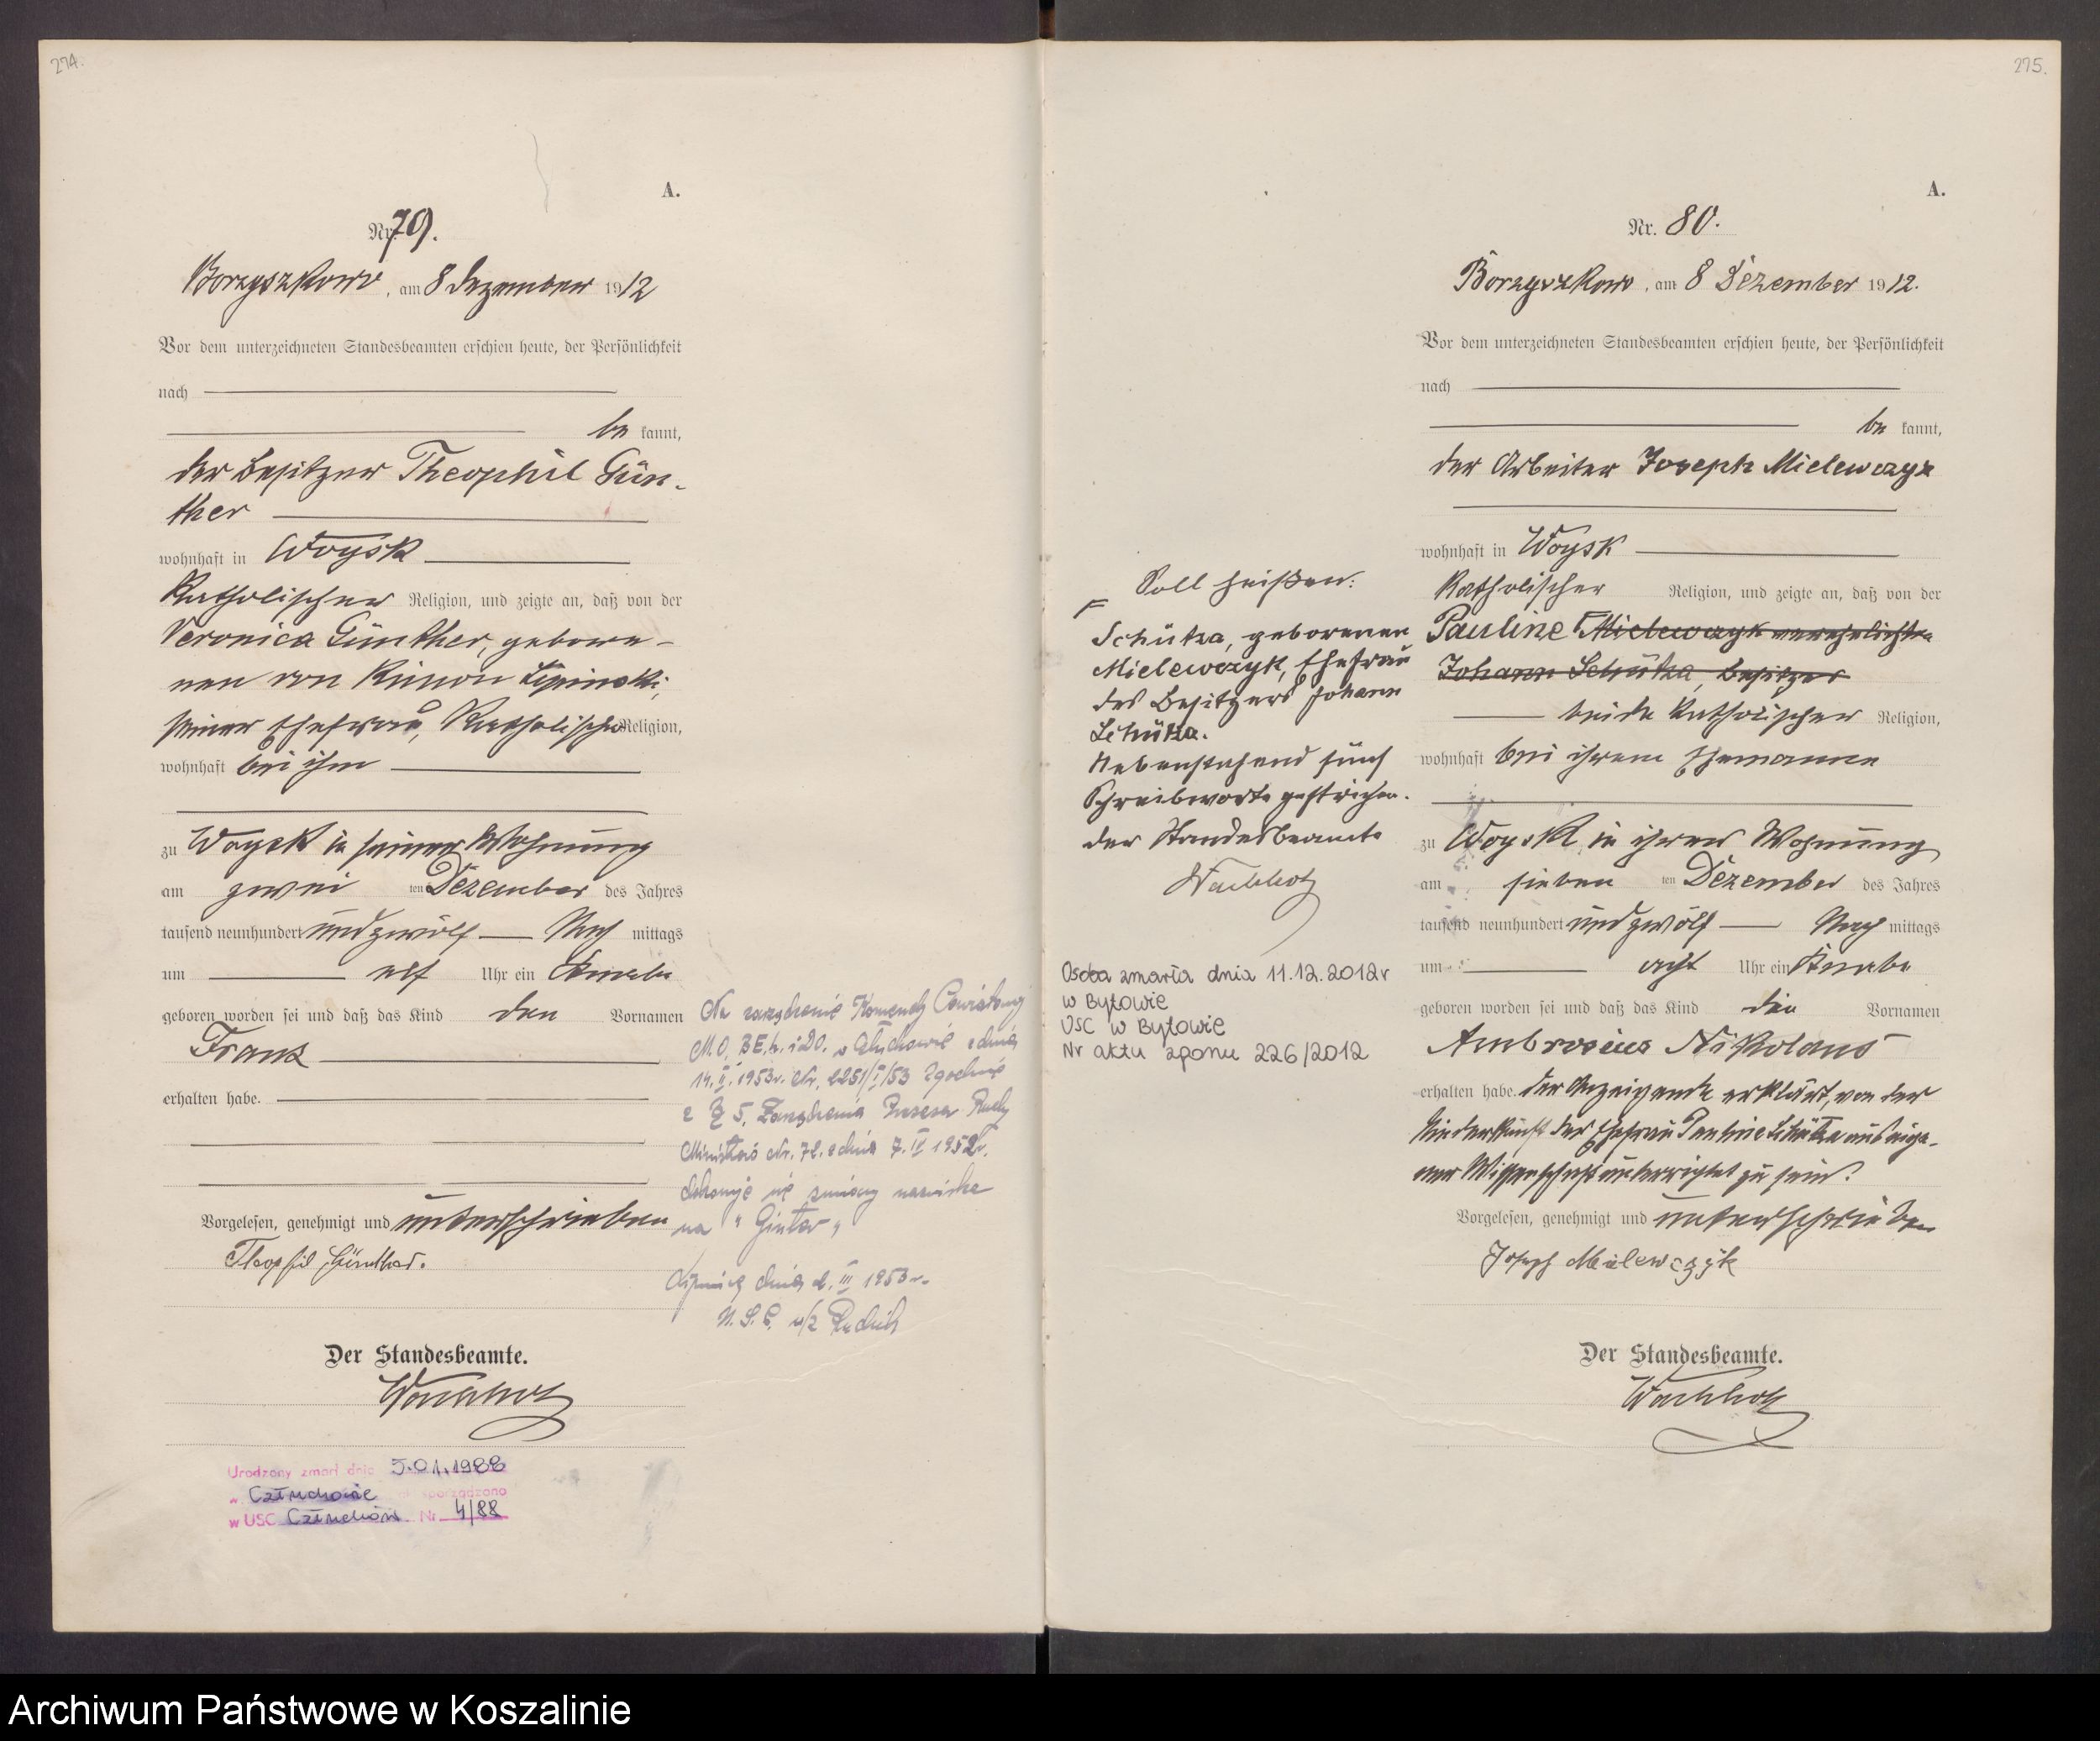 274.
A.
Nr. 79.
Borzyszkowo, am 8 Dezember 1912
Vor dem unterzeichneten Standesbeamten erschien heute, der Persönlichkeit
nach
be kannt,
der Besitzer Theophil Gün-
ther
wohnhaft in Woysk
Katholischer Religion, und zeigte an, daß von der
Veronica Günther, gebore-
nen von Kimon Lipinski,
seiner Ehefrau, Katholischer Religion,
wohnhaft bei ihm
zu Woysk in seiner Wohnung
am zwei ten Dezember des Jahres
tausend neunhundert und zwölf Nach mittags
um elf Uhr ein Knabe
geboren worden sei und daß das Kind den Vornamen
Franz
erhalten habe.
Vorgelesen, genehmigt und unterschrieben
Theophil Günther.
Der Standesbeamte.
Wachholz
Urodzony zmarł dnia 5.01.1988
w Człuchowie akt sporządzono
w USC Człuchów Nr 4/88
Na zarządzenie Komendy Powiatowej
M.O. w Człuchowie z dnia
14.II.1953r. Nr. zgodnie
z § 5. Zarządzenia Prezesa Rady
Ministrów Nr. 72. z dnia 7.IV 1952r.
dokonuje się zmiany nazwiska
na "Ginter"
Lipnica dnia 2.III 1953r.
U.S.C.
275.
A.
Nr. 80.
Borzyszkowo, am 8 Dezember 1912.
Vor dem unterzeichneten Standesbeamten erschien heute, der Persönlichkeit
nach
be kannt,
der Arbeiter Joseph Mielewczyk
wohnhaft in Woysk
Katholischer Religion, und zeigte an, daß von der
Pauline Mielewczyk verehelichten
Johann Schütza, Besitzer
beide Katholischer Religion,
wohnhaft bei ihrem Ehemanne
zu Woysk in ihrer Wohnung
am sieben ten Dezember des Jahres
tausend neunhundert und zwölf Nach mittags
um acht Uhr ein Knabe
geboren worden sei und daß das Kind die Vornamen
Ambrosius Nikolaus
erhalten habe. Der Anzeigende erklärt, von der
Niederkunft der Ehefrau Pauline Schütza aus eige-
ner Wissenschaft unterrichtet zu sein.
Vorgelesen, genehmigt und unterschrieben
Joseph Mielewczyk
Der Standesbeamte.
Wachholz
Soll heißen:
Schütza, geborenen
Mielewczyk, Ehefrau
des Besitzers Johann
Schütza.
Nebenstehend fünf
Schreibworte gestrichen.
der Standesbeamte
Wachholz
Osoba zmarła dnia 11.12.2012r
w Bytowie
USC w Bytowie
Nr aktu zgonu 226/2012
Archiwum Państwowe w Koszalinie